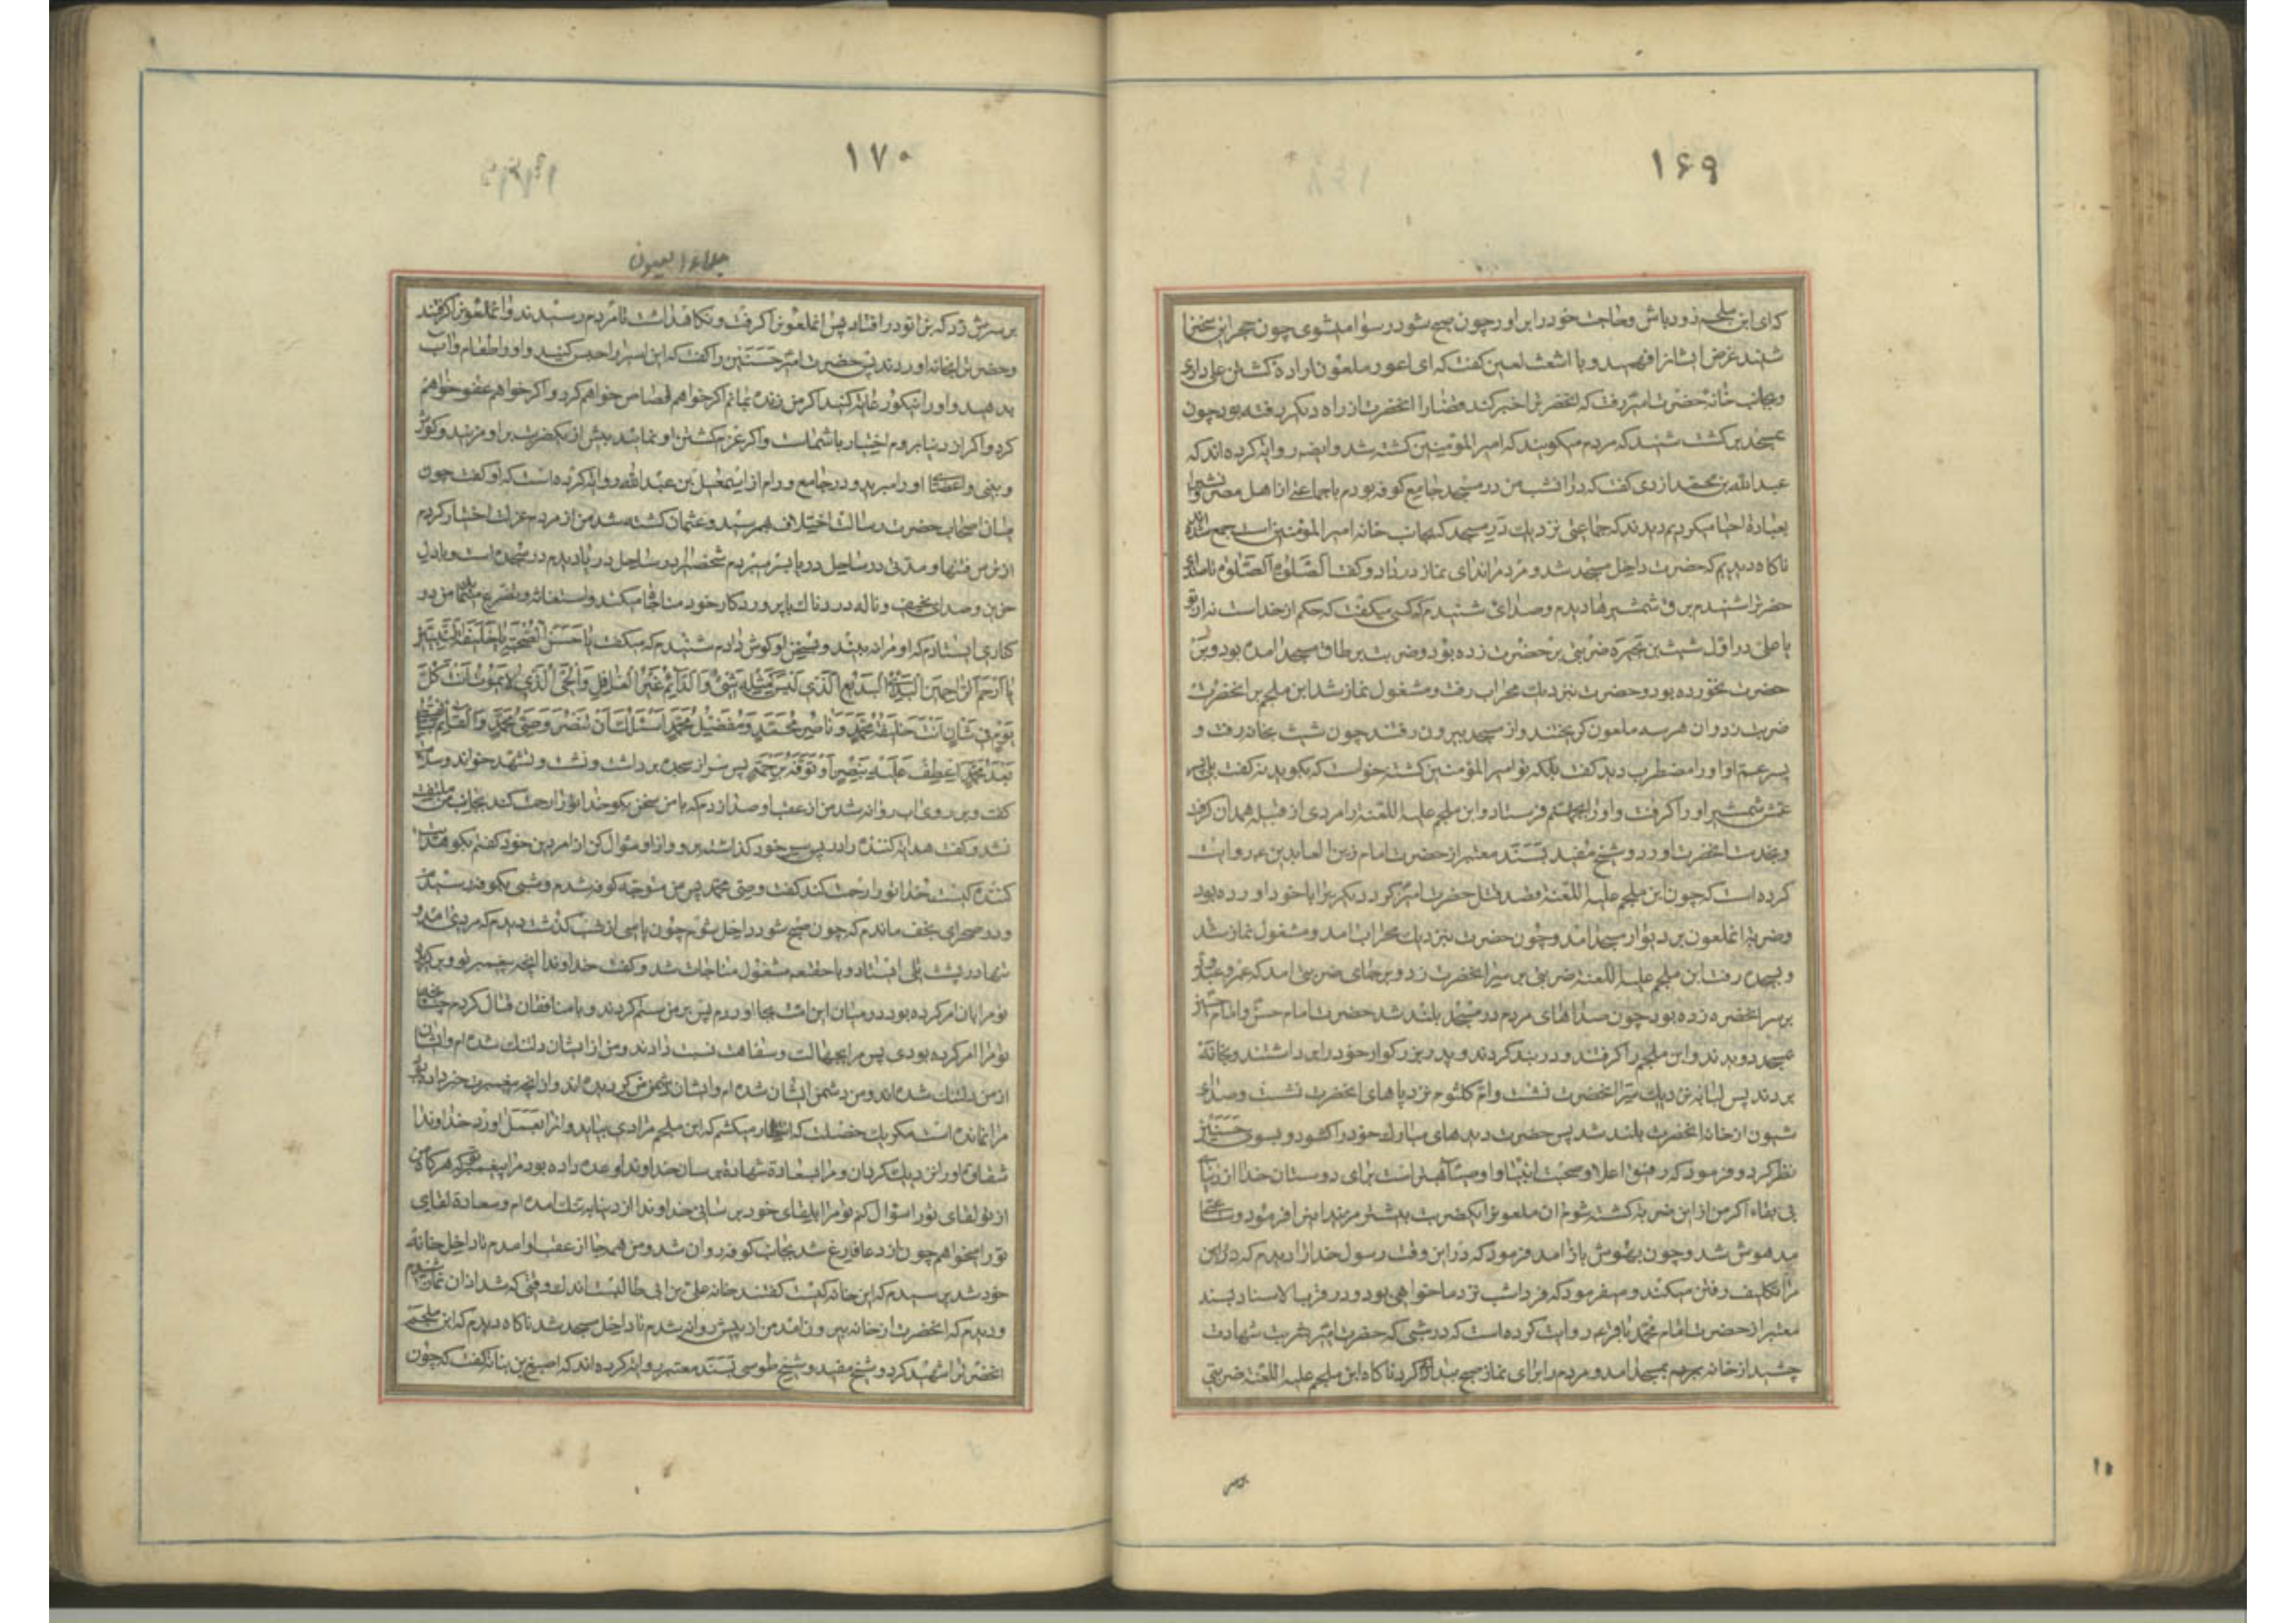 ۱۶۹
که ای ابن ملجم زود باش و حاجت خود را براور چون صبح شود رسوا میشوی چون حجر این سخنرا
شنید غرض ایشانرا فهمید و با اشعث لعین کفت که ای اعور ملعون اراده کشتن علی داری
و بجانب خانه حضرت امیر رفت که انحضرترا خبر کند قضارا انحضرت از راه دیکر رفته بود چون
بمسجد برکشت شنید که مردم میکویند که امیر المؤمنین کشته شد و ایضه روایة کرده اند که
عبد الله بن محمد ازدی کفت که در انشب من در مسجد جامع کوفه بودم با جماعتی از اهل مصر و شبرا
بعبادة احیا میکردیم دیدند که جماعتی نزدیك در مسجد که بجانب خانه امیر المؤمنین است جمع شده اند
ناکاه دیدیم که حضرت داخل مسجد شد و مردمرا ندای نماز در داد و کفت الصلوة الصلوة تا صدای
حضرترا شنیدم برق شمشیرها دیدم و صدائی شنیدم که کسی میکفت که حکم از خداست نه از تو
یا علی در اول شبث بن بجره ضربتی بر حضرت زده بود و ضربت بر طاق مسجد امده بود و بر
حضرت نخورده بود و حضرت بنزدیك محراب رفت و مشغول نماز شد ابن ملجم بر انحضرت
ضربت زد و ان هر سه ملعون کریختند و از مسجد بیرون رفتند چون شبث بخانه رفت و
پسر عم او او را مضطرب دید کفت بلکه تو امیر المؤمنین کشتهٔ خواست که بکوید نه کفت بلی پسر
عمش شمشیر او را کرفت و او را بجهنم فرستاد و ابن ملجم علیه اللعنة را مردی از قبیله همدان کرفت
و بخدمت انحضرت اورد و شیخ مفید بسند معتبر از حضرت امام زین العابدین ع روایت
کرده است که چون ابن ملجم علیه اللعنة قصد قتل حضرت امیر کرد دیکریرا با خود اورده بود
و ضربة انملعون بر دیوار مسجد امد و چون حضرت بنزدیك محراب امد و مشغول نماز شد
و بسجده رفت ابن ملجم علیه اللعنة ضربتی بر سر انحضرت زد و بر جای ضربتی امد که عمرو عبدود
بر سر انحضرت زده بود چون صداهای مردم در مسجد بلند شد حضرت امام حسن و امام حسین
بمسجد دویدند و ابن ملجم را کرفتند و در بند کردند و پدر بزرکوار خود را برداشتند و بخانه
بردند پس لبابه نزدیك سر انحضرت نشست و ام کلثوم نزد پاهای انحضرت نشست و صدای
شیون از خانهٔ انحضرت بلند شد پس حضرت دیدهای مبارك خود را کشود و بسوی حسنین
نظر کرد و فرمود که رفیق اعلا و صحبت انبیا و اوصیا بهتر است برای دوستان خدا از دنیای
بی بقاء اکر من از این ضربة کشته شوم ان ملعونرا یکضربت بیشتر مزنید اینرا فرمود و ساعتی
مدهوش شد و چون بهوش باز امد فرمود که در این وقت رسول خدا را دیدم که
مرا تکلیف رفتن میکند و میفرمود که فردا شب نزد ما خواهی بود و در قرب الاسناد بسند
معتبر از حضرت امام محمد باقر ع روایت کرده است که در شبی که حضرت امیر ضربت شهادت
چشید از خانه بمسجد امد و مردم را برای نماز صبح بیدار کرد ناکاه ابن ملجم علیه اللعنة ضربتی
۱۷۰
جلاء العیون
بر سرش زد که بزانو در افتاد پس انملعونرا کرفت و نکاه داشت تا مردم رسیدند و انملعونرا کرفتند
و حضرترا بخانه اوردند پس حضرت امیر حسنین را کفت که این اسیر را حبس کنید و او را طعام و آب
بدهید و او را نیکو رعایت کنید اکر من زنده بمانم اکر خواهم قصاص خواهم کرد و اکر خواهم عفو خواهم
کرد و اکر از دنیا بروم اختیار با شماست و اکر عزم کشتن او نمائید بیش از یکضربت بر او مزنید و کوش
و بینی و اعضای او را مبرید و در جامع ورام از اسمعیل بن عبد الله روایة کرده است که او کفت چون
میان اصحاب حضرت رسالت اختلاف بهم رسید و عثمان کشته شد من از مردم عزلت اختیار کردم
از ترس فتنها و مدتی در ساحل دریا بسر میبردم شخصیرا در ساحل دریا دیدم در سجده است و بادل
حزین و صدای نحیف و ناله دردناك با پروردکار خود مناجاة میکند و استغاثه و تضرع مینماید من در
کناری ایستادم که او مرا نه بیند و بسخن او کوش دادم شنیدم که میکفت یا حسن الصحبة یا خلیفة النبیین
یا ارحم الراحمین البدئ البدیع الذی لیس کمثله شئ و الدائم غیر الغافل و الحی الذی لا یموت انت کل
یوم فی شان انت خلیفة محمد و ناصر محمد و مفضل محمد اسئلك ان تنصر وصی محمد و القائم بالقسط
بعد محمد اعطف علیه بنصر او توفه برحمة پس سر از سجده برداشت و نشست و تشهد خواند و سلام
کفت و بر روی اب روانه شد من از عقب او صدا زدم که با من سخن بکو خدا تو را رحمت کند بجانب من ملتفت
نشد و کفت هدایة کننده را در پس سر خود کذاشتهٔ برو و از او سؤال کن از امر دین خود کفتم بکو هدایت
کننده کیست خدا تو را رحمت کند کفت وصی محمد پس من متوجه کوفه شدم و شبی بکوفه رسیدم
و در صحرای نجف ماندم که چون صبح شود داخل شوم چون پاسی از شب کذشت دیدم که مردی امد و
تنها در پشت تلی ایستاد و با حقتعه مشغول مناجات شد و کفت خداوندا انچه پیغمبر تو و برکزیده
تو مرا بان امر کرده بود در میان این امت بجا اوردم پس بر من ستم کردند و با منافقان قتال کردم چنانچه
تو مرا امر کرده بودی پس مرا بجهالت و سفاهت نسبت دادند و من از ایشان دلتنك شده ام و ایشان
از من دلتنك شده اند و من دشمن ایشان شده ام و ایشان دشمن من کردیده اند و از انچه پیغمبرت خبر داده بود
مرا نمانده است مکر یك خصلت که انتظار میکشم که ابن ملجم مرادی بیاید و انرا بعمل اورد خداوندا
شقاوة او را نزدیك کردان و مرا بسعادة شهادة برسان خداوندا وعده داده بود مرا پیغمبر تو که هرکاه من
از تو لقای تو را سؤال کنم تو مرا بلقای خود برسانی خداوندا از دنیا به تنك امده ام و سعادة لقای
تو را میخواهم چون از دعا فارغ شد بجانب کوفه روان شد و من همه جا از عقب او امدم تا داخل خانهٔ
خود شد پرسیدم که این خانه کیست کفتند خانه علی بن ابی طالبست اندك وقتی که شد اذان نماز شنیدم
و دیدم که انحضرت از خانه بیرون امد من از پیش روانه شدم تا داخل مسجد شد ناکاه دیدم که ابن ملجم
انحضرترا شهید کرد و شیخ مفید و شیخ طوسی بسند معتبر روایة کرده اند که اصبغ بن نباته کفت که چون